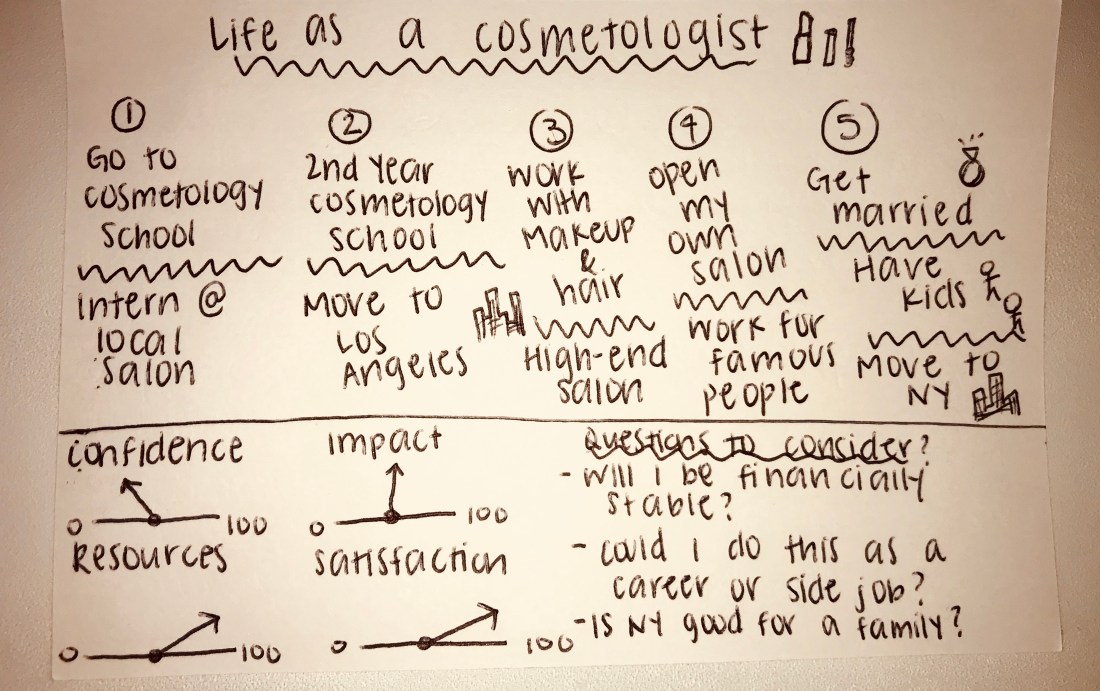 Life as a cosmetologist
1
Go to
cosmetology
school
Intern @
local
salon
2
2nd year
cosmetology
school
Move to
Los
Angeles
3
work
with
makeup
&
hair
High-end
salon
4
open
my
own
salon
work for
famous
people
5
Get
married
Have
kids
Move to
NY
Confidence
0 100
Impact
0 100
Resources
0 100
Satisfaction
0 100
Questions to consider?
- Will I be financially
stable?
- Could I do this as a
career or side job?
- Is NY good for a family?